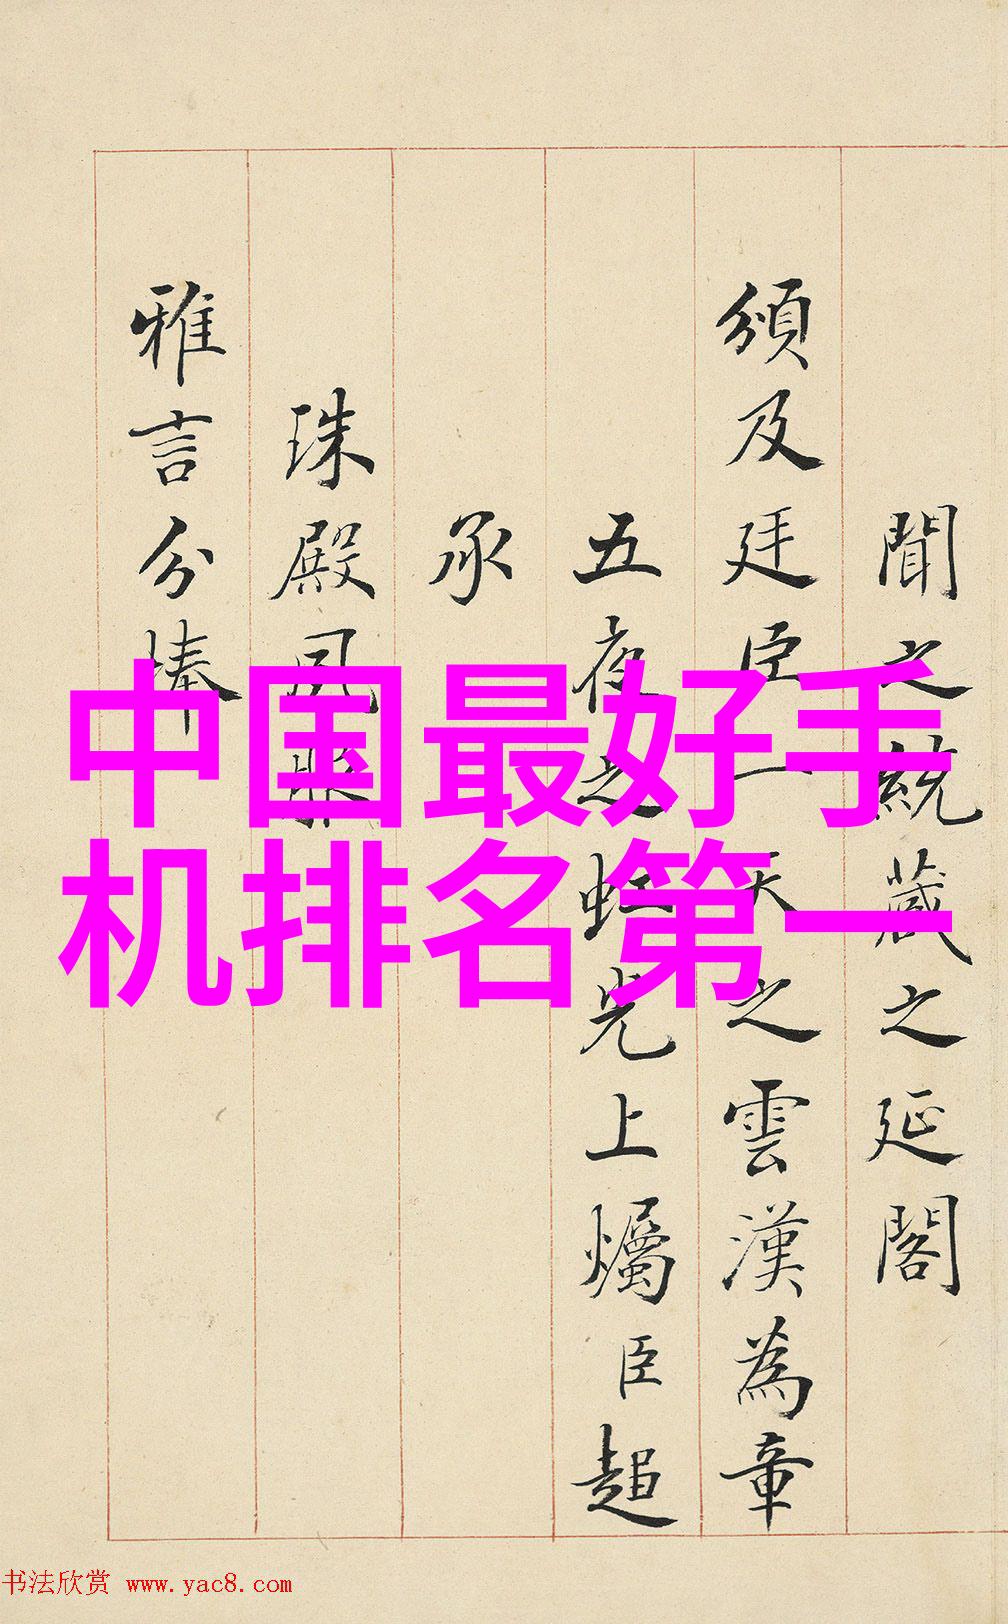 聞之統藏之延閣
頒及廷臣一天之雲漢為章
五夜之虹光上燭臣超
承
珠殿風
雅言分捧
中国最好手
机排名第一
书法欣赏 www.yac8.com